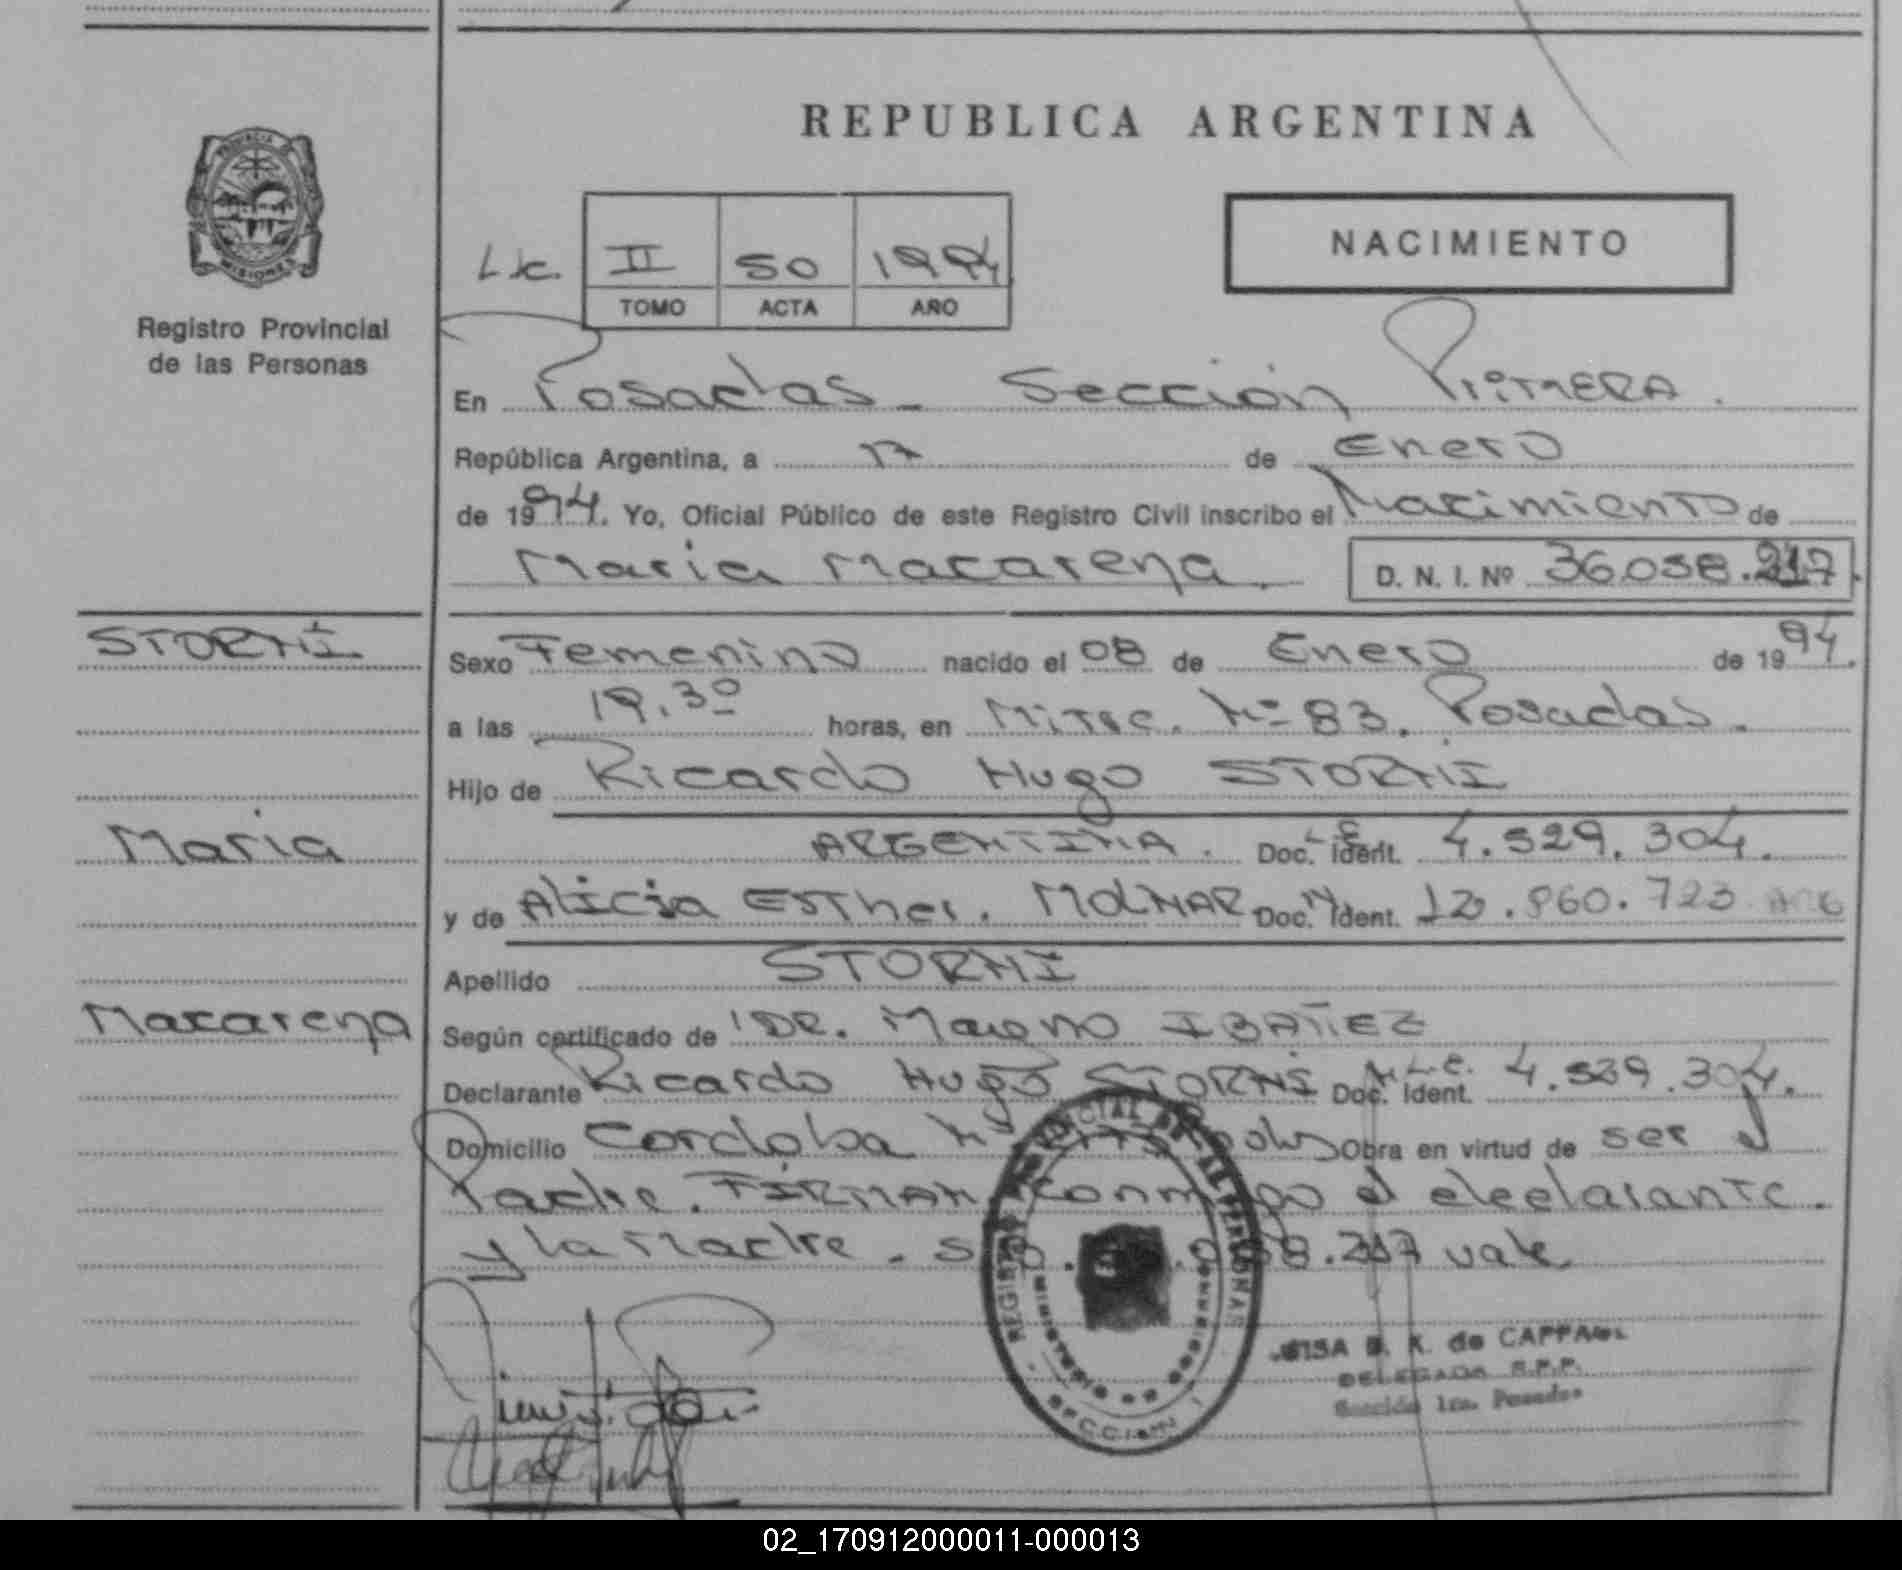 REPUBLICA ARGENTINA
PROVINCIA DE
MISIONES
Registro Provincial
de las Personas
NACIMIENTO
II 50 1994
TOMO ACTA AÑO
En Posadas - Sección PRIMERA.
República Argentina, a 17 de Enero
de 1994. Yo, Oficial Público de este Registro Civil inscribo el Nacimiento de
Maria Macarena. D. N. I. Nº 36.038.217.
STORNI
Sexo Femenino nacido el 08 de Enero de 1994.
a las 19.30 horas, en Mitre. Nº 83. Posadas.
Hijo de Ricardo Hugo STORNI
Maria
ARGENTINA. Doc. Ident. L E 4.529.304.
y de Alicia ESTher. MOLNAR Doc. Ident. 12.860.723
Apellido STORNI
Macarena
Según certificado de DR. Moreno IBAÑEZ
Declarante Ricardo Hugo STORNI Doc. Ident. L.E. 4.529.304.
Domicilio Cordoba Obra en virtud de ser el
Padre. FIRMAN conmigo el declarante.
y la Madre. 217 vale
REGISTRO PROVINCIAL DE LAS PERSONAS
MINISTERIO DE GOBIERNO
SECCION 1
B. K. de
DELEGADA R.P.P.
Sección 1ra. Posadas
02_170912000011-000013